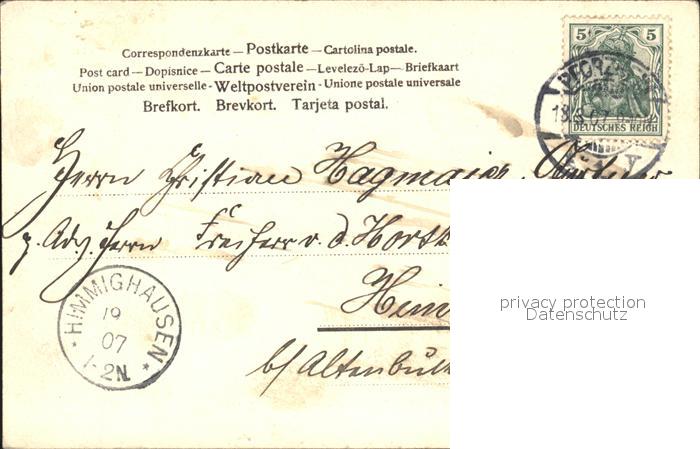 Correspondenzkarte — Postkarte — Cartolina postale.
Post card — Dopisnice — Carte postale — Levelező-Lap — Briefkaart
Union postale universelle - Weltpostverein - Unione postale universale
Brefkort. Brevkort. Tarjeta postal.
5 5
DEUTSCHES REICH
Herrn Christian Hagmaier
z. Adr. Herrn Freiherr v. d. Horst
b/ Altenbü
HIMMIGHAUSEN
19
07
1-2N.
privacy protection
Datenschutz